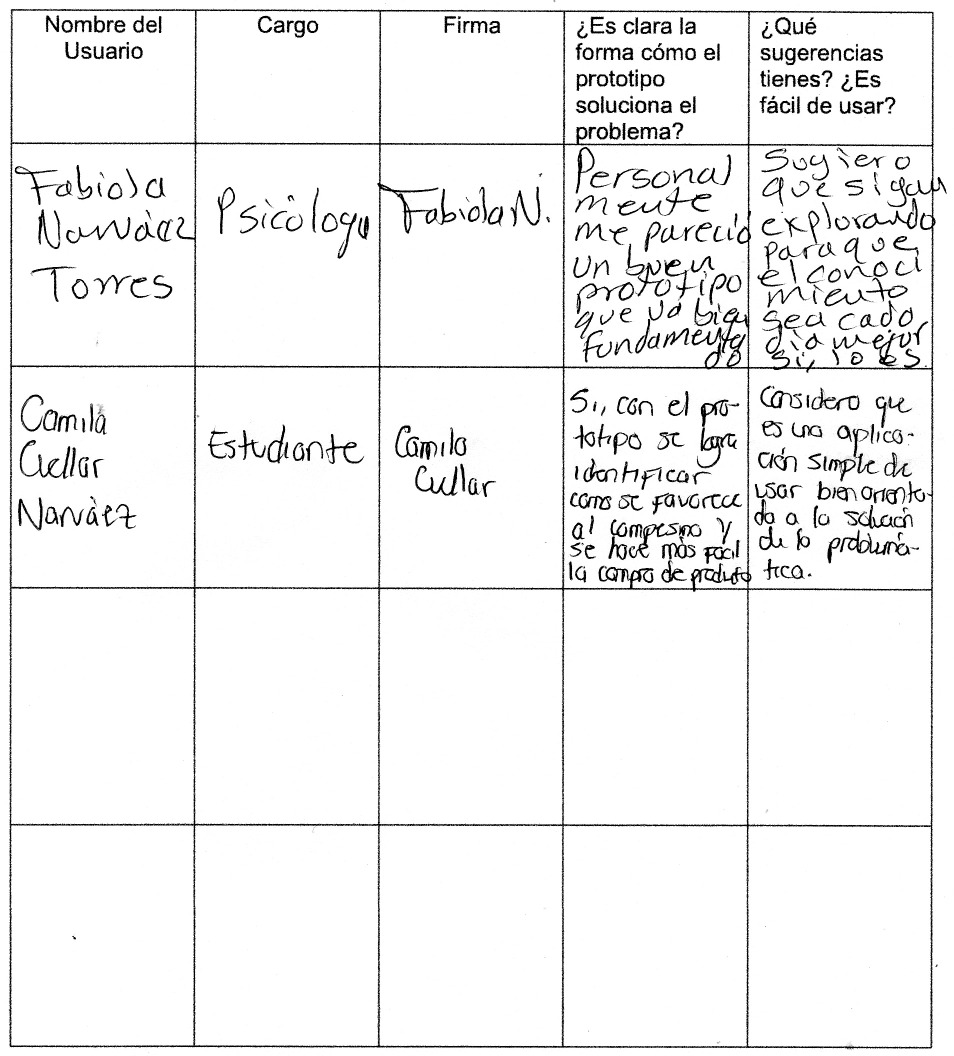 Nombre del
Usuario
Cargo
Firma
¿Es clara la
forma cómo el
prototipo
soluciona el
problema?
¿Qué
sugerencias
tienes? ¿Es
fácil de usar?
Fabiola
Narváez
Torres
Psicóloga
Fabiola N.
Personal
mente
me pareció
un buen
prototipo
que va bien
fundamenta
do
Sugiero
que sigan
explorando
para que
el conoci
miento
sea cada
día mejor
si, lo es.
Camila
Cuellar
Narváez
Estudiante
Camila
Cuellar
Si, con el pro-
totipo se logra
identificar
como se favorece
al campesino y
se hace más fácil
la compra de producto
Considero que
es una aplica-
ción simple de
usar bien orienta-
da a la solución
de la problemá-
tica.